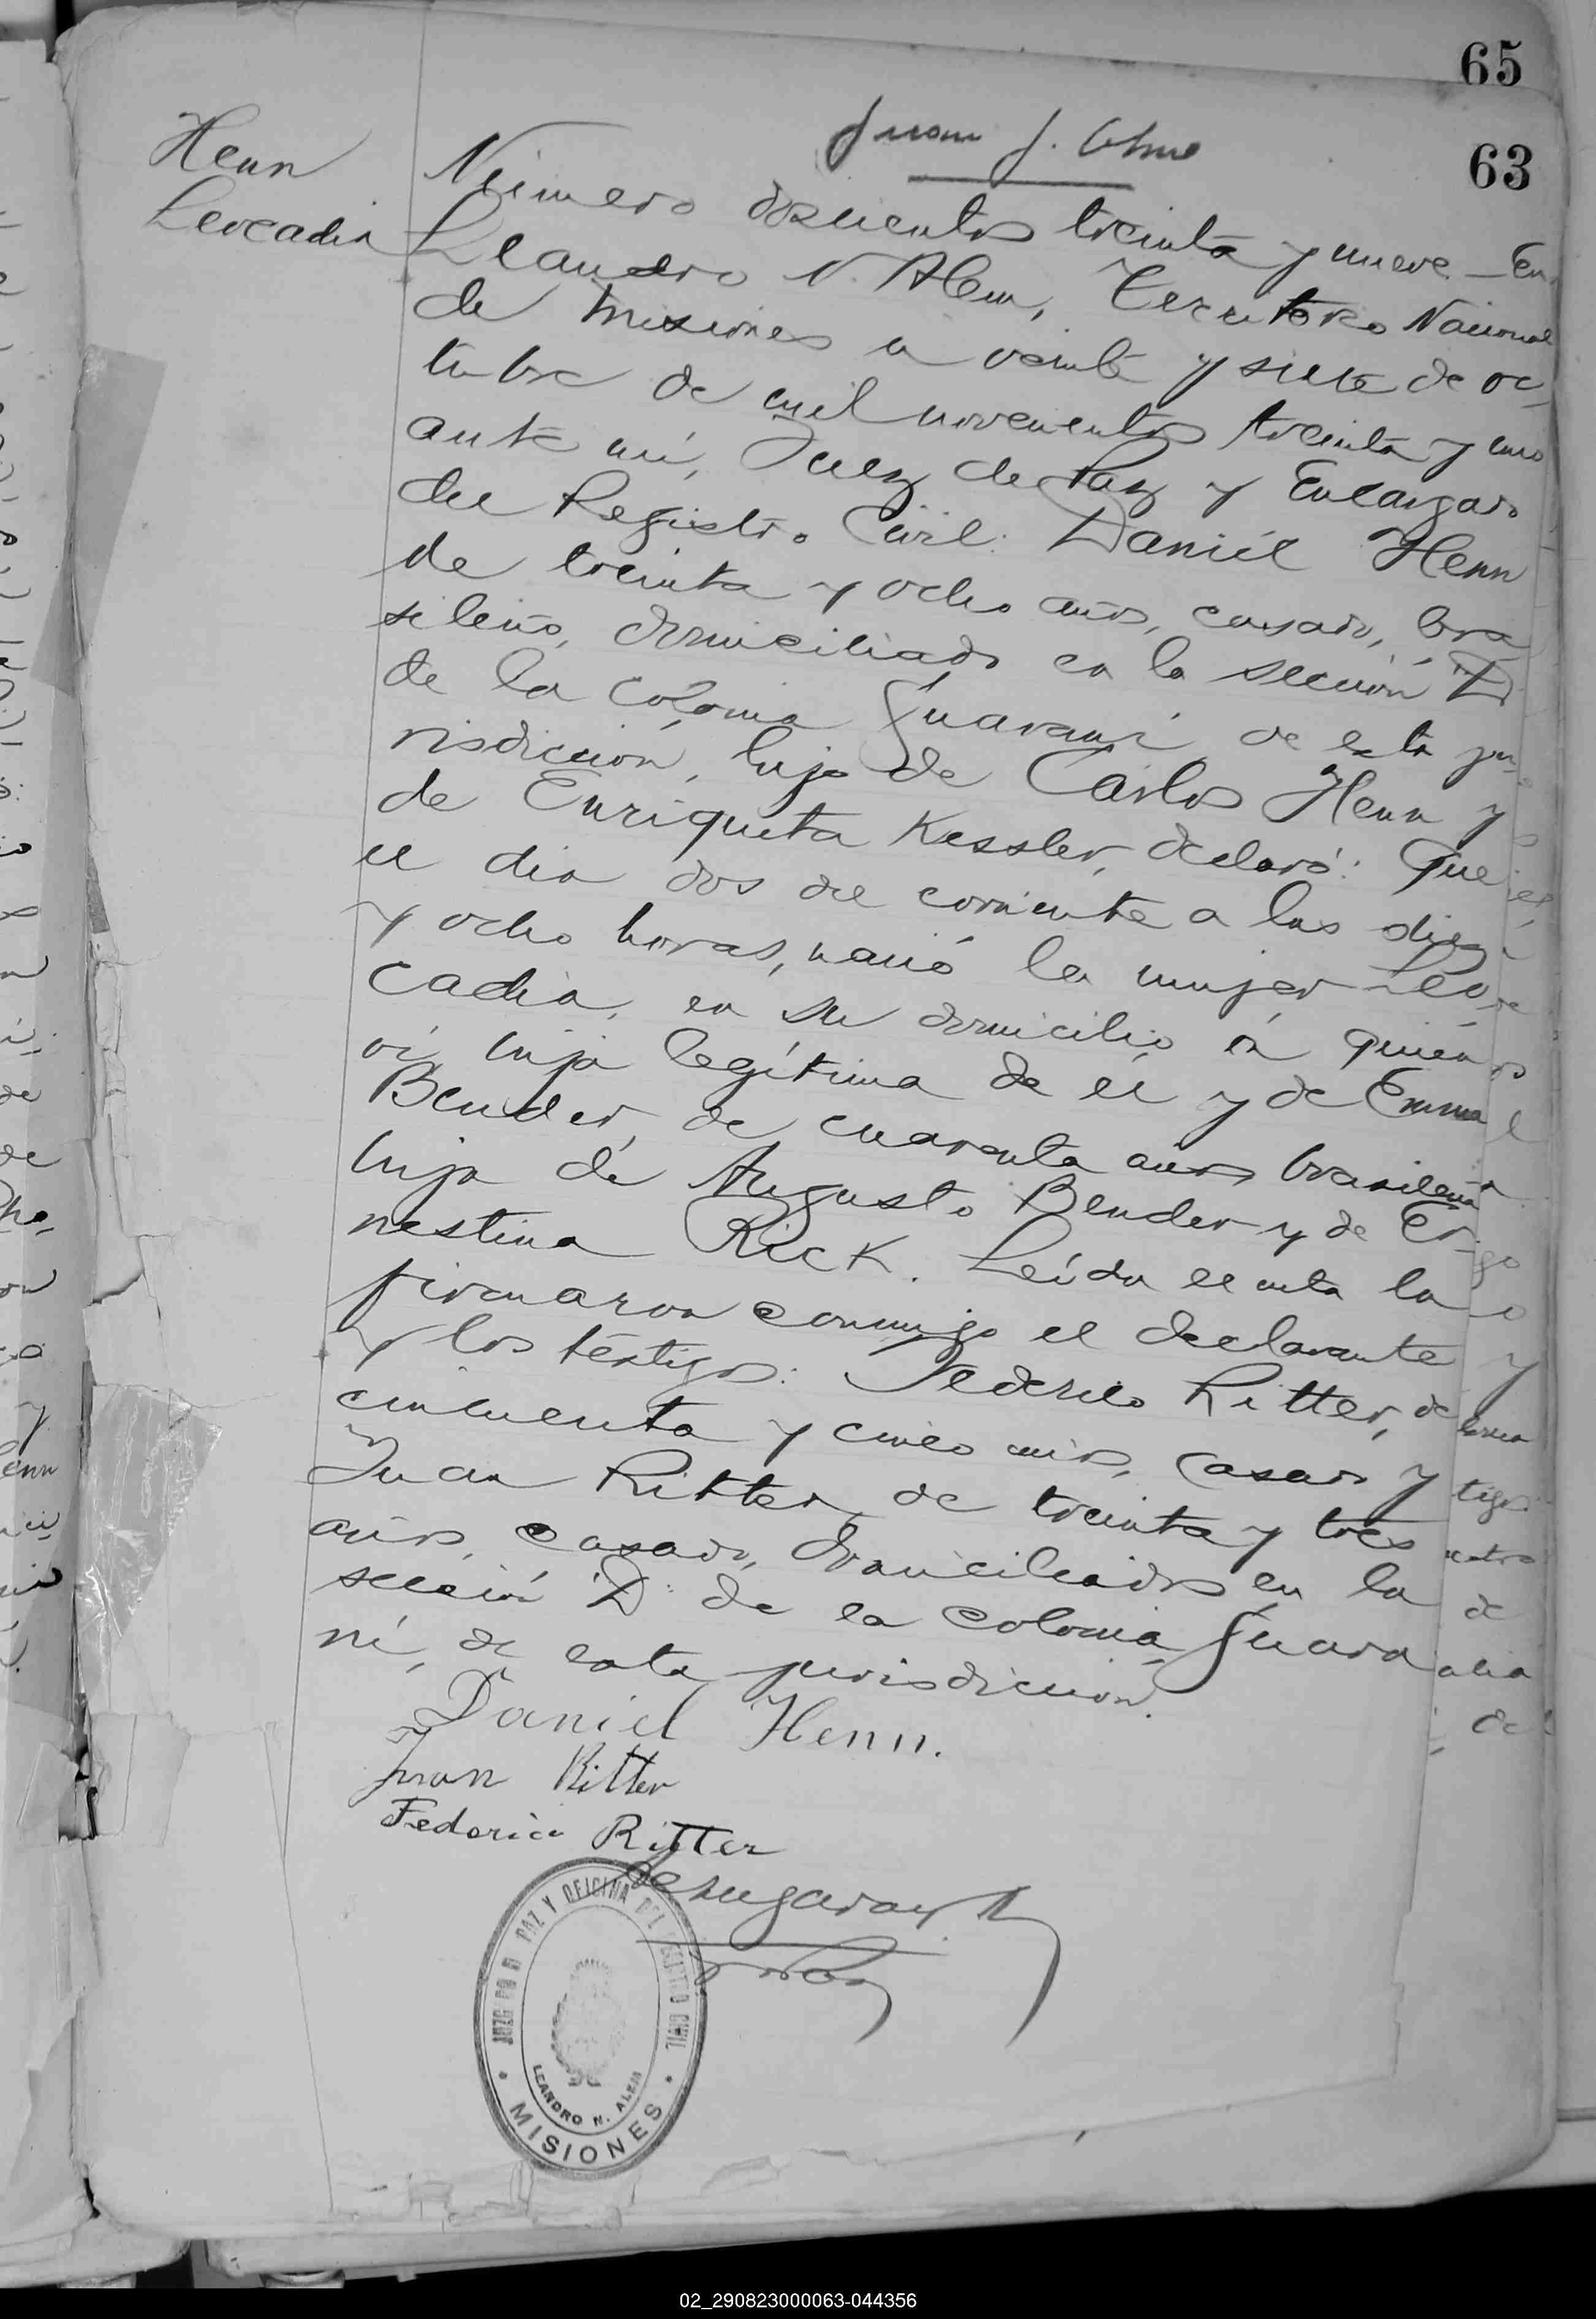 65
63
Henn
Leocadia
Juan J.
Número doscientos treinta y nueve - En
Leandro N. Alem, Territorio Nacional
de Misiones a veinte y siete de oc_
tubre de mil novecientos treinta y uno
ante mí, Juez de Paz y Encargado
del Registro Civil: Daniél Henn
de treinta y ocho años, casado, bra
sileño, domiciliado en la sección "D"
de la colonia Guaraní, de esta ju_
risdicción, hijo de Carlos Henn y
de Enriqueta Kessler, declaró: Que
el día dos del corriente a las diez
y ocho horas, nació la mujer Leo_
cadia, en su domicilio á quién
ví, hija legítima de él y de Emma
Bender, de cuarenta años brasileña
hija de Augusto Bender y de Er_
nestina Rick. Leída el acta la
firmaron conmigo el declarante
y los téstigos: Federico Ritter, de
cincuenta y cinco años, casado y
Juan Ritter, de treinta y tres
años, casado, domiciliados en la
sección "D" de la colonia Guara
ní, de esta jurisdicción.
Daniel Henn.
Juan Ritter
Federico Ritter
JUZGADO D PAZ Y OFICINA DEL REGISTRO CIVIL
LEANDRO N. ALEM
MISIONES
02_290823000063-044356